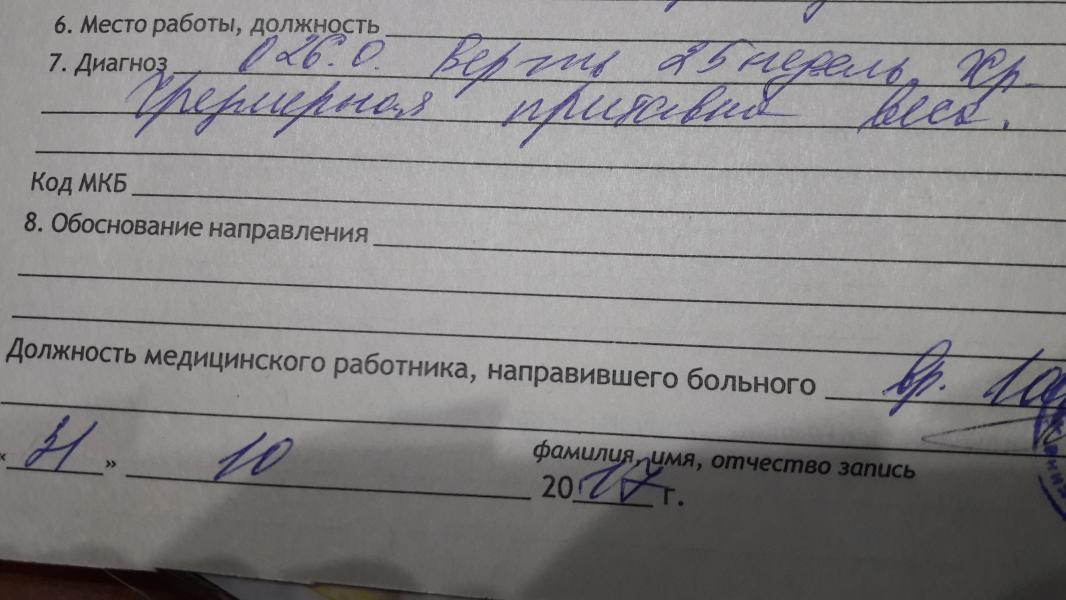 6. Место работы, должность
7. Диагноз О26.0. Бер-ть 25 недель. Хр.
Чрезмерная прибавка веса.
Код МКБ
8. Обоснование направления
Должность медицинского работника, направившего больного вр.
фамилия, имя, отчество запись
«31» 10 2017 г.